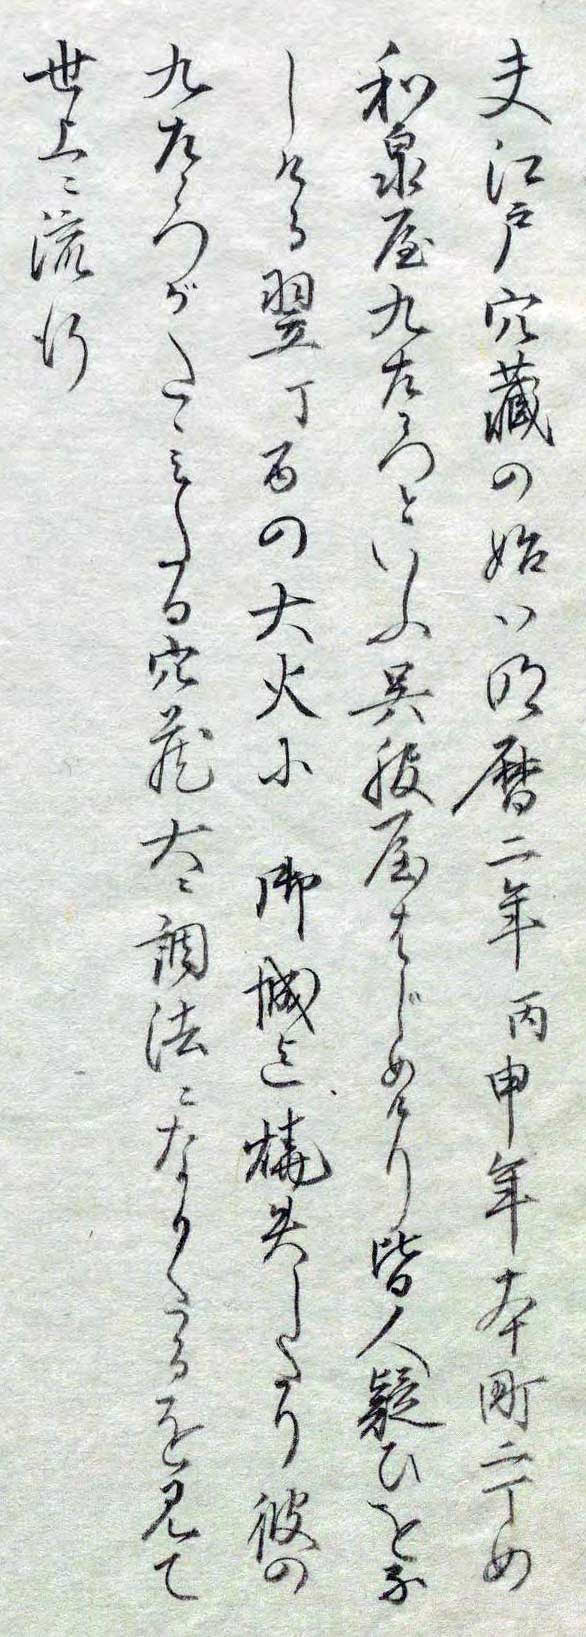 夫江戸穴藏の始ハ明暦二年丙申年本町二丁め
和泉屋九左衛門といふ呉服屋はじめけり皆人疑ひをな
しける翌丁酉の大火に 御城迄燒失したり彼の
九左衛門がたくみたる穴蔵大ニ調法ニなりたるを見て
世上ニ流行